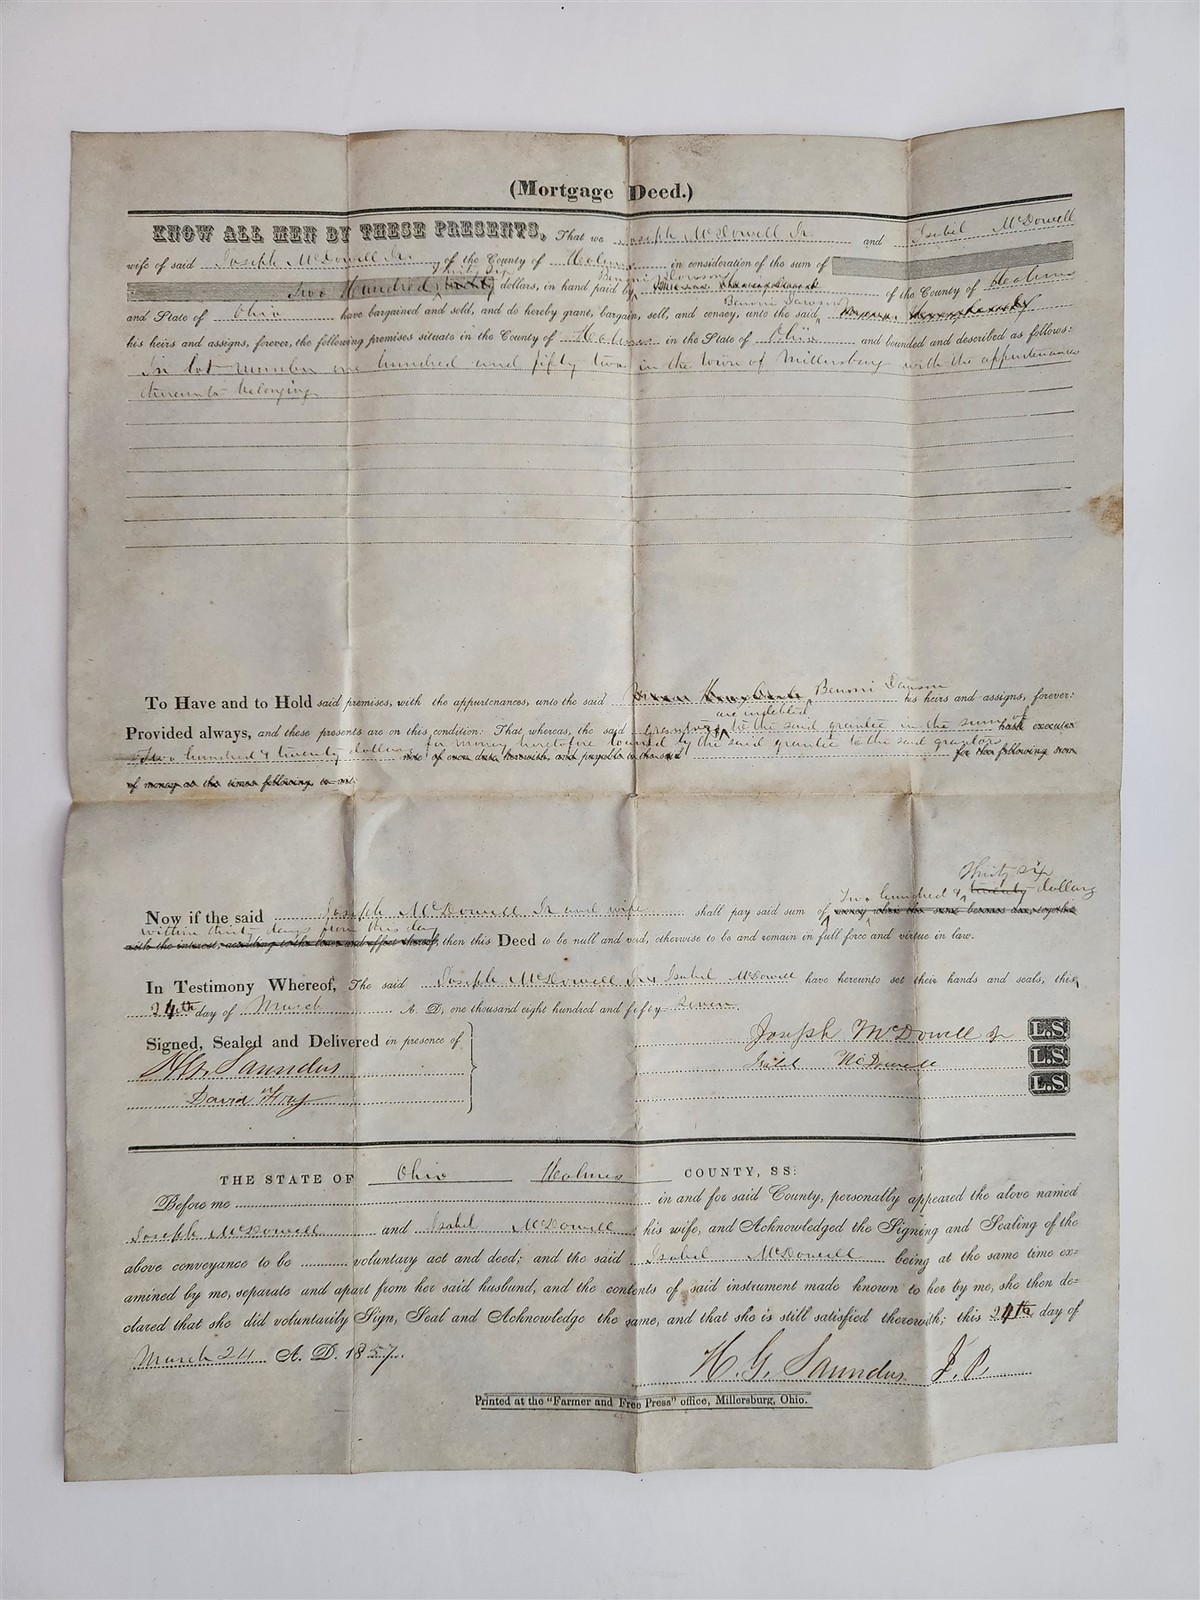 (Mortgage Deed.)
KNOW ALL MEN BY THESE PRESENTS, That we Joseph McDowell Jr. and Isabel McDowell
wife of said Joseph McDowell Jr. of the County of Holmes in consideration of the sum of
thirty six Benoni Dawson
Two Hundred, twenty dollars, in hand paid by of the County of Holmes
Benoni Dawson
and State of Ohio have bargained and sold, and do hereby grant, bargain, sell, and convey, unto the said,
his heirs and assigns, forever, the following premises situate in the County of Holmes in the State of Ohio and bounded and described as follows:
In lot number one hundred and fifty two in the town of Millersburg with the appurtenances
thereunto belonging
To Have and to Hold said premises, with the appurtenances, unto the said Benoni Dawson his heirs and assigns, forever:
are indebted
Provided always, and these presents are on this condition: That whereas, the said grantors to the said grantee in the sum of have executed
for money heretofore loaned by the said grantee to the said grantors
Two hundred & twenty dollars note of even date herewith, and payable to the said for the following sum
of money at the times following, to wit:
Thirty six
Two hundred & twenty dollars
Now if the said Joseph McDowell Jr and wife shall pay said sum of money when the same becomes due, together
within thirty days from this day
with the interest, according to the tenor and effect thereof, then this Deed to be null and void, otherwise to be and remain in full force and virtue in law.
In Testimony Whereof, The said Joseph McDowell Jr & Isabel McDowell have hereunto set their hands and seals, this
24th day of March A. D. one thousand eight hundred and fifty seven.
Signed, Sealed and Delivered in presence of
Joseph McDowell Jr L.S.
H. G. Saunders
Isabel McDowell L.S.
David
L.S.
THE STATE OF Ohio Holmes COUNTY, SS:
Before me in and for said County, personally appeared the above named
Joseph McDowell and Isabel McDowell his wife, and Acknowledged the Signing and Sealing of the
above conveyance to be voluntary act and deed; and the said Isabel McDowell being at the same time ex=
amined by me, separate and apart from her said husband, and the contents of said instrument made known to her by me, she then de=
clared that she did voluntarily Sign, Seal and Acknowledge the same, and that she is still satisfied therewith; this 24th day of
March 24 A. D. 1857.
H. G. Saunders J. P.
Printed at the "Farmer and Free Press" office, Millersburg, Ohio.